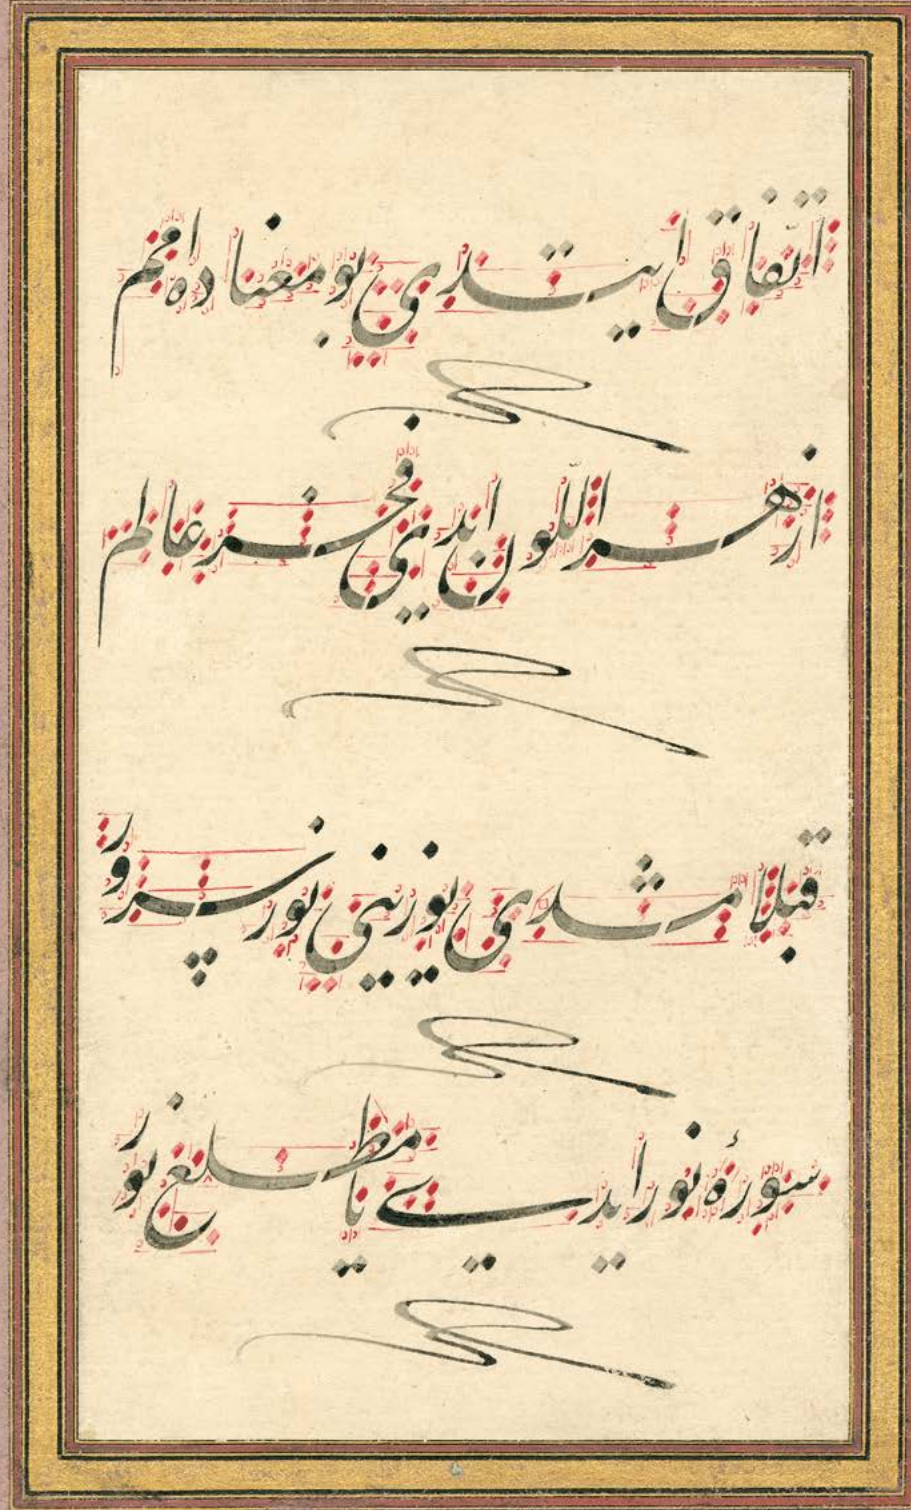 اتّفاق ايتدى بو معناده امم
ازهر اللّون ايدى فخر عالم
قبلامشدى يوزينى نور سرور
سورهٔ نور ايدى يا مطلع نور